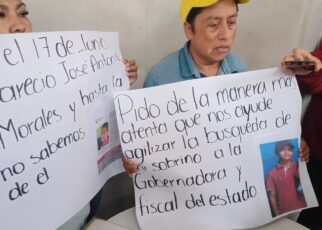 el 17 de Junio
arecio José Antonio
Morales y hasta la
no sabemos
de el
Pido de la manera mas
atenta que nos ayude
agilizar la busqueda de
sobrino a la
Gobernadora y
fiscal del estado